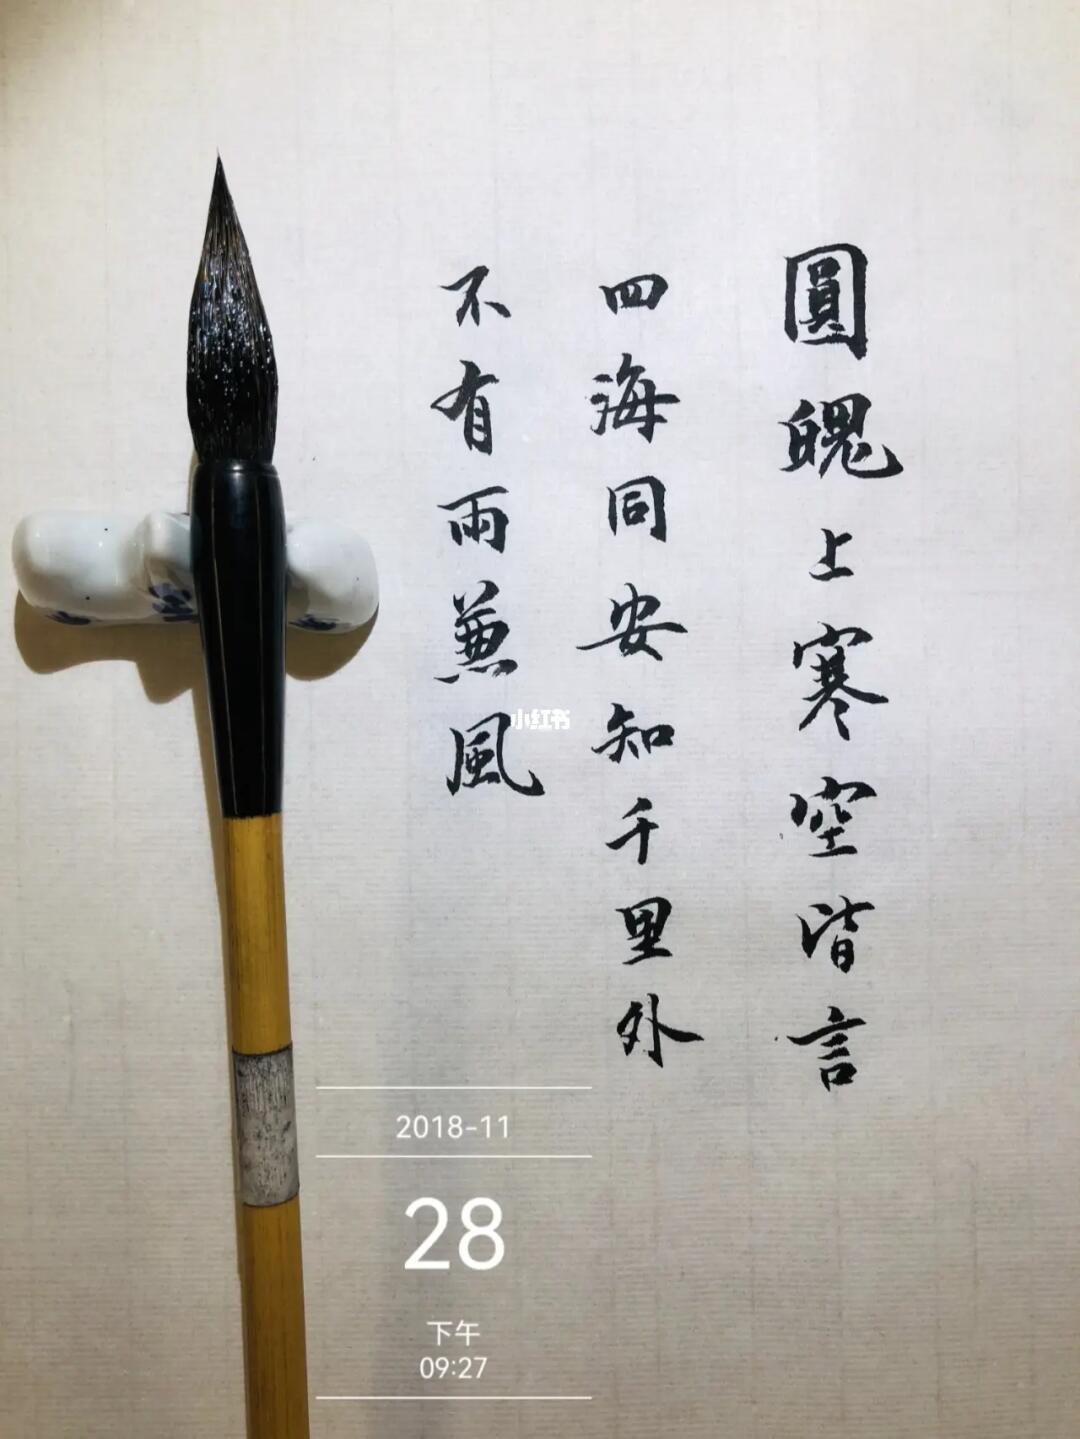 圓魄上寒空皆言
四海同安知千里外
不有雨兼風
小红书
2018-11
28
下午
09:27